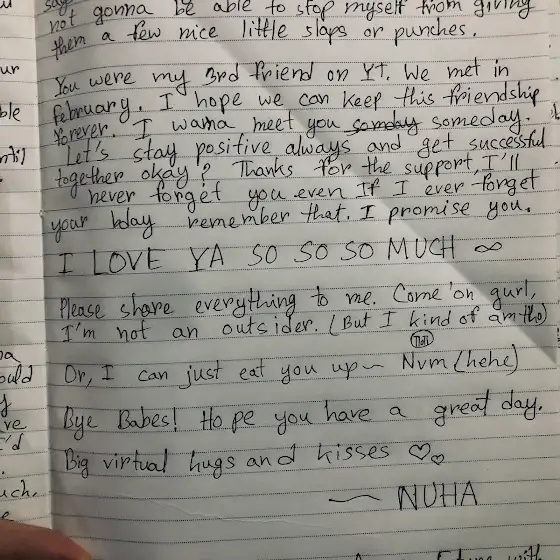 say
not gonna be able to stop myself from giving
them a few nice little slaps or punches.
You were my 3rd friend on YT. We met in
February. I hope we can keep this friendship
forever. I wanna meet you someday someday.
Let's stay positive always and get successful
together okay? Thanks for the support, I'll
never forget you even If I ever forget
your bday remember that. I promise you.
I LOVE YA SO SO SO MUCH ∞
Please share everything to me. Come'on gurl,
I'm not an outsider. (But I kind of am tho)
Or, I can just eat you up~ Nvm (hehe)
Bye Babes! Hope you have a great day.
Big virtual hugs and kisses ♡♡
— NUHA